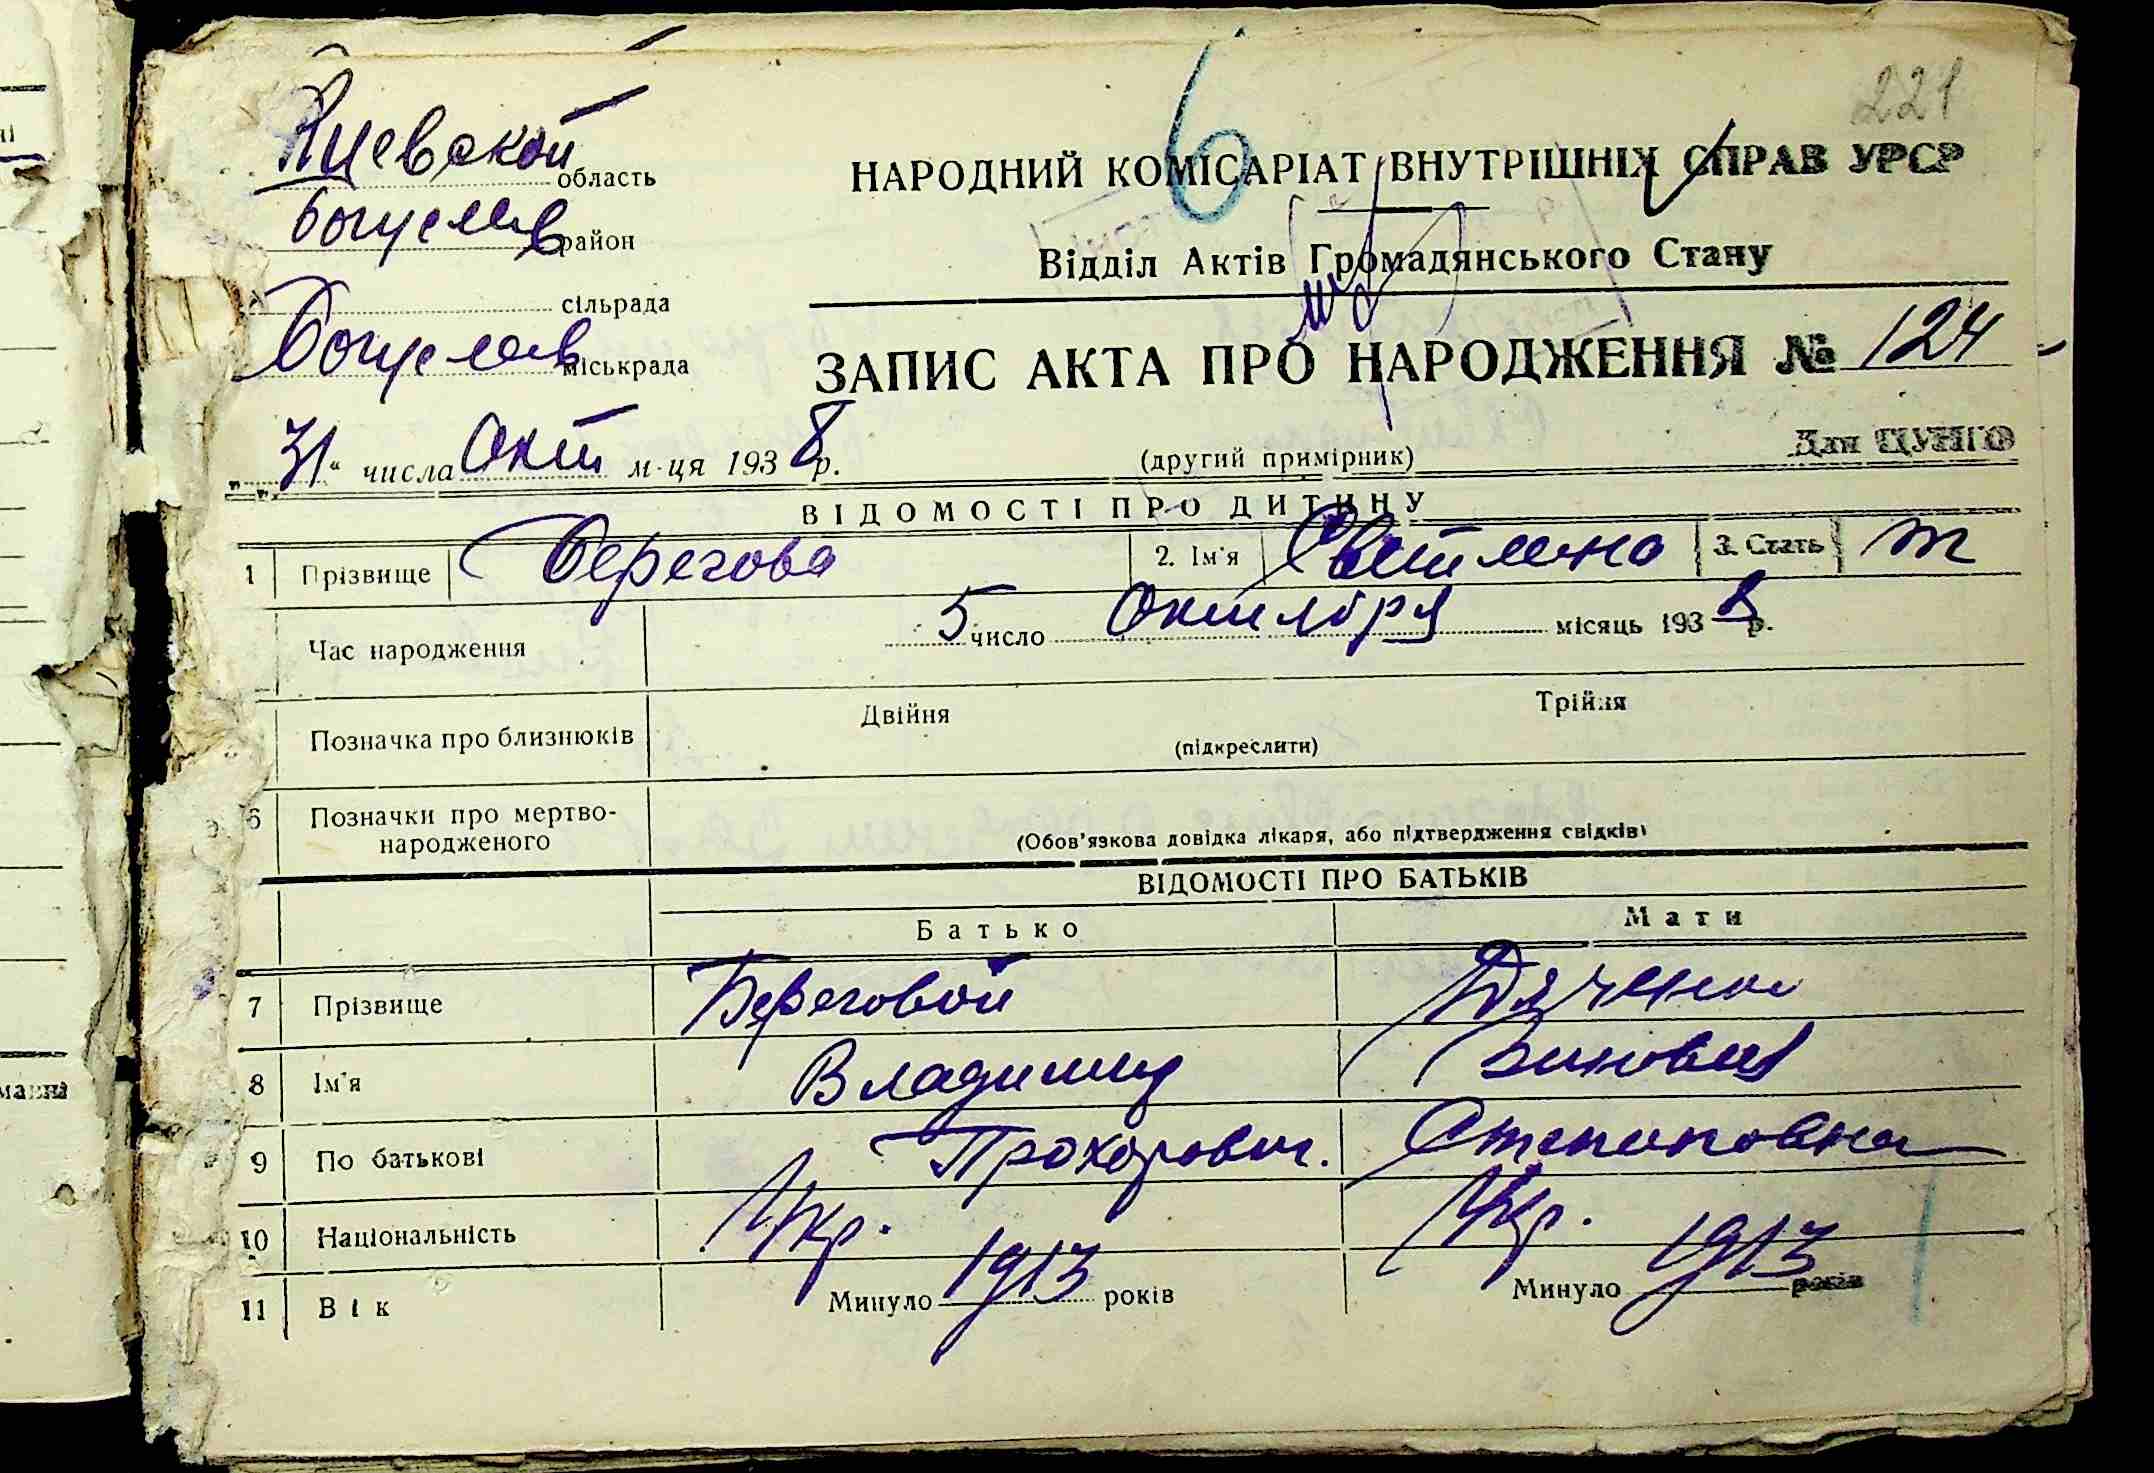 221
6
Киевской область
Богуслав район
сільрада
Богуслав міськрада
НАРОДНИЙ КОМІСАРІАТ ВНУТРІШНІХ СПРАВ УРСР
Відділ Актів Громадянського Стану
ЗАПИС АКТА ПРО НАРОДЖЕННЯ № 124
„31“ числа Окт м-ця 1938 р.
(другий примірник)
Для ЦУНГО
ВІДОМОСТІ ПРО ДИТИНУ
1 Прізвище Берегова 2. Ім'я Светлана 3. Стать
Час народження 5 число Октября місяць 1938 р.
Позначка про близнюків Двійня Трійня
(підкреслити)
6 Позначки про мертво-
народженого (Обов'язкова довідка лікаря, або підтвердження свідків)
ВІДОМОСТІ ПРО БАТЬКІВ
Батько Мати
7 Прізвище Береговой Дяченко
8 Ім'я Владимир Зиновия
9 По батькові Прохорович. Степановна
10 Національність Укр. Укр.
11 Вік Минуло 1913 років Минуло 1913 років